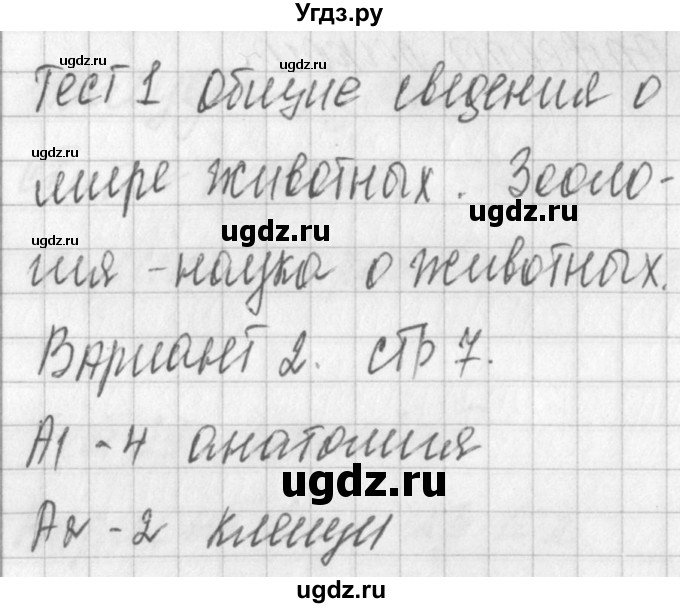 Угдз.ру
ugdz.ru
ugdz.ru
Тест 1 Общие сведения о
ugdz.ru
мире животных. Зооло-
ugdz.ru
ugdz.ru
ugdz.ru
гия - наука о животных.
Вариант 2. стр 7.
А1 - 4 анатомия
ugdz.ru
А2 - 2 клещи
ugdz.ru